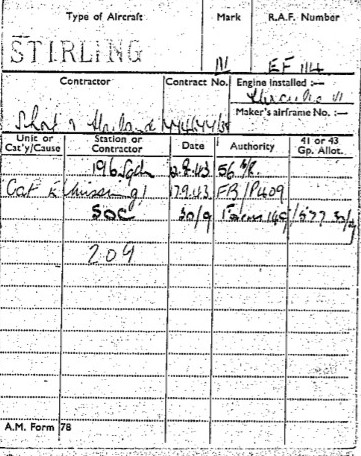 Type of Aircraft Mark R.A.F. Number
STIRLING III EF 114
Contractor Contract No. Engine installed :—
Short & Harland Hercules
Maker's airframe No. :—
Unit or Cat'y/Cause Station or Contractor Date Authority 41 or 43 Gp. Allot.
196 Sqdn 2.8.43 56
Cat E (Missing) 17.9.43 FB/P409
SOC 30/9 Form
209
A.M. Form 78